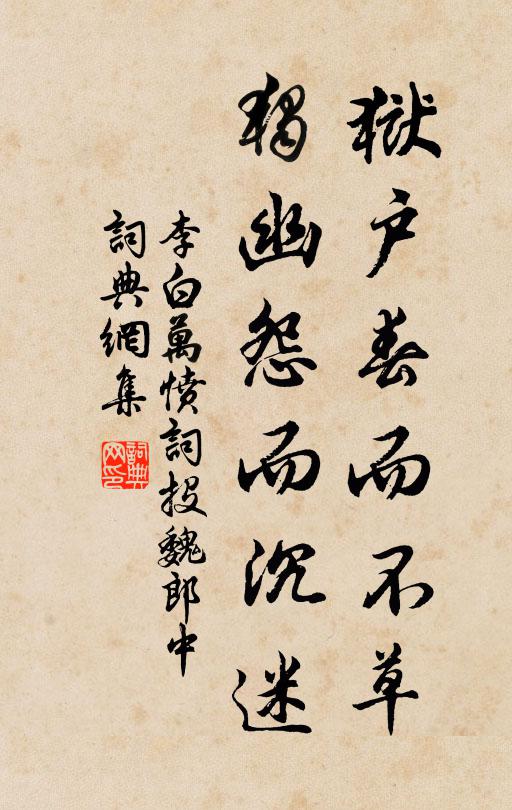 獄户春而不草
獨幽怨而沉迷
李白萬憤詞投魏郎中
詞典網集
詞典
网印